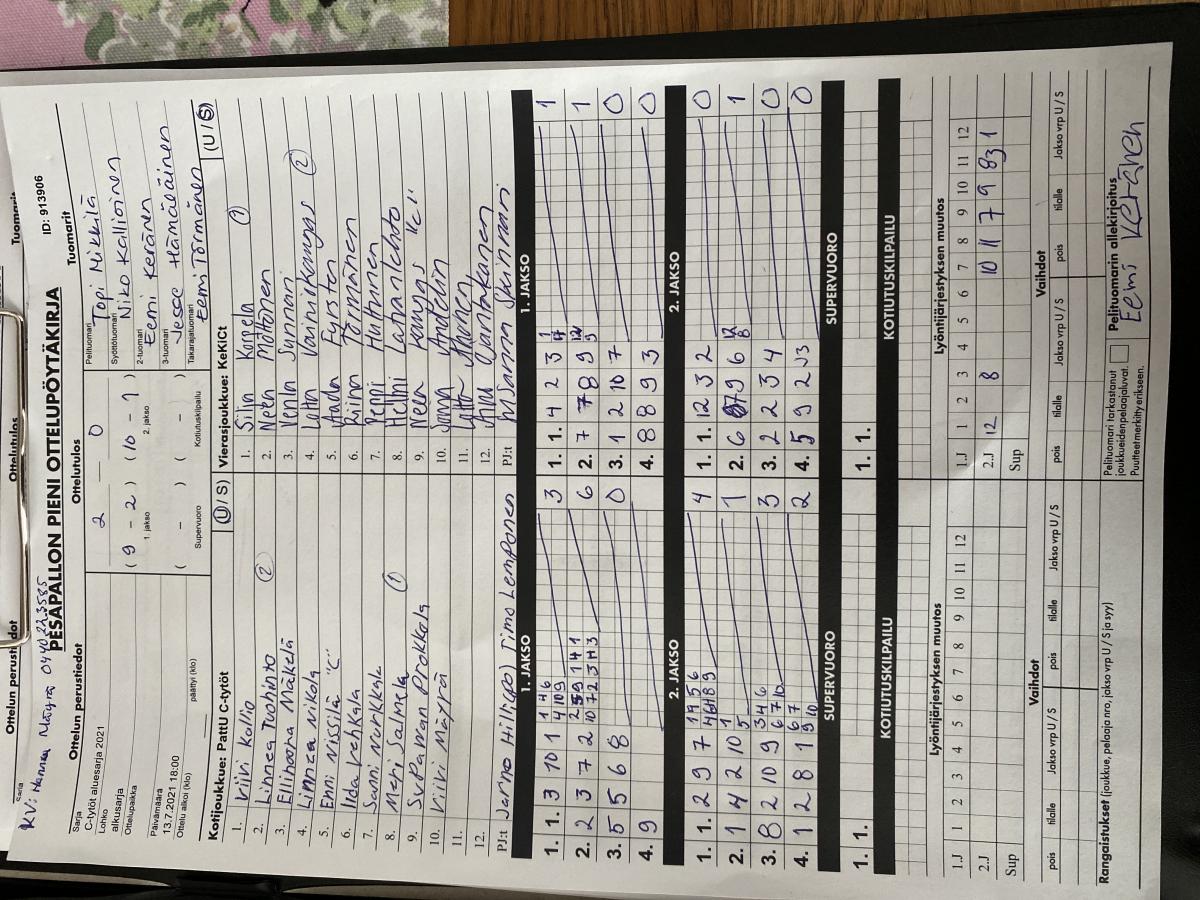 Ottelun perustiedot
Tuomarit
KV: Hannea Mäyrä 0440223585
PESÄPALLON PIENI OTTELUPÖYTÄKIRJA
ID: 913906
Ottelun perustiedot
Ottelutulos
Tuomarit
Sarja
C-tytöt aluesarja 2021
Lohko
alkusarja
Ottelupaikka
Päivämäärä
13.7.2021 18:00
Ottelu alkoi (klo)
päättyi (klo)
2 — 0
( 9 - 2 ) ( 10 - 1 )
1. jakso
2. jakso
( - ) ( - )
Supervuoro
Kotiutuskilpailu
Pelituomari
Topi Mikkilä
Syöttötuomari
Niko Kallioinen
2-tuomari
Eemi Keränen
3-tuomari
Jesse Hämäläinen
Takarajatuomari
Eemi Törmänen
Kotijoukkue: PattU C-tytöt
(U / S)
1. Viivi Kallio
2. Linnea Tuohinto 2
3. Ellinoora Mäkelä
4. Linnea Nikola
5. Enni Nissilä "C"
6. Iida Vehkala
7. Sani Nurkkala
8. Meri Salmela 1
9. Prokkola
10. Viivi Mäyrä
11.
12.
PJ:t Jarno Hillipö) Timo Lemponen
Vierasjoukkue: KeKiCt
(U / S)
1. Silja Korpela 1
2. Neea Möttönen
3. Venla Sunnari
4. Lotta Vainiokangas 2
5. Aada Fyrsten
6. Riina Törmänen
7. Peppi Huhtinen
8. Helmi Lahanlehto
9. Neea Kangas "C"
10. Sanna Andelin
11. Lotta Ahonen
12.
PJ:t Sunnari
1. JAKSO
1. JAKSO
1. 1. 3 10 1 3
2. 2 3 7 2 6
3. 5 5 6 8 0
4. 9
1. 1. 4 2 3 1
2. 7 7 8 9 1
3. 1 2 10 7 0
4. 8 8 9 3 0
2. JAKSO
2. JAKSO
1. 1. 2 9 7 4
2. 1 4 2 10 1
3. 8 2 10 9 3
4. 1 2 8 1 2
1. 1. 12 3 2 0
2. 6 9 6 1
3. 2 2 3 4 0
4. 5 9 2 3 0
SUPERVUORO
SUPERVUORO
1. 1.
1. 1.
KOTIUTUSKILPAILU
KOTIUTUSKILPAILU
Lyöntijärjestyksen muutos
Lyöntijärjestyksen muutos
1.J 1 2 3 4 5 6 7 8 9 10 11 12
2.J
Sup
1.J 1 2 3 4 5 6 7 8 9 10 11 12
2.J 12 8 10 11 7 9 8 3 1
Sup
Vaihdot
Vaihdot
pois tilalle Jakso vrp U / S pois tilalle Jakso vrp U / S
pois tilalle Jakso vrp U / S pois tilalle Jakso vrp U / S
Rangaistukset (joukkue, pelaaja nro, jakso vrp U / S ja syy)
Pelituomari tarkastanut
joukkueidenpelaajaluvat.
Puutteet merkitty erikseen.
Pelituomarin allekirjoitus
Eemi Keränen